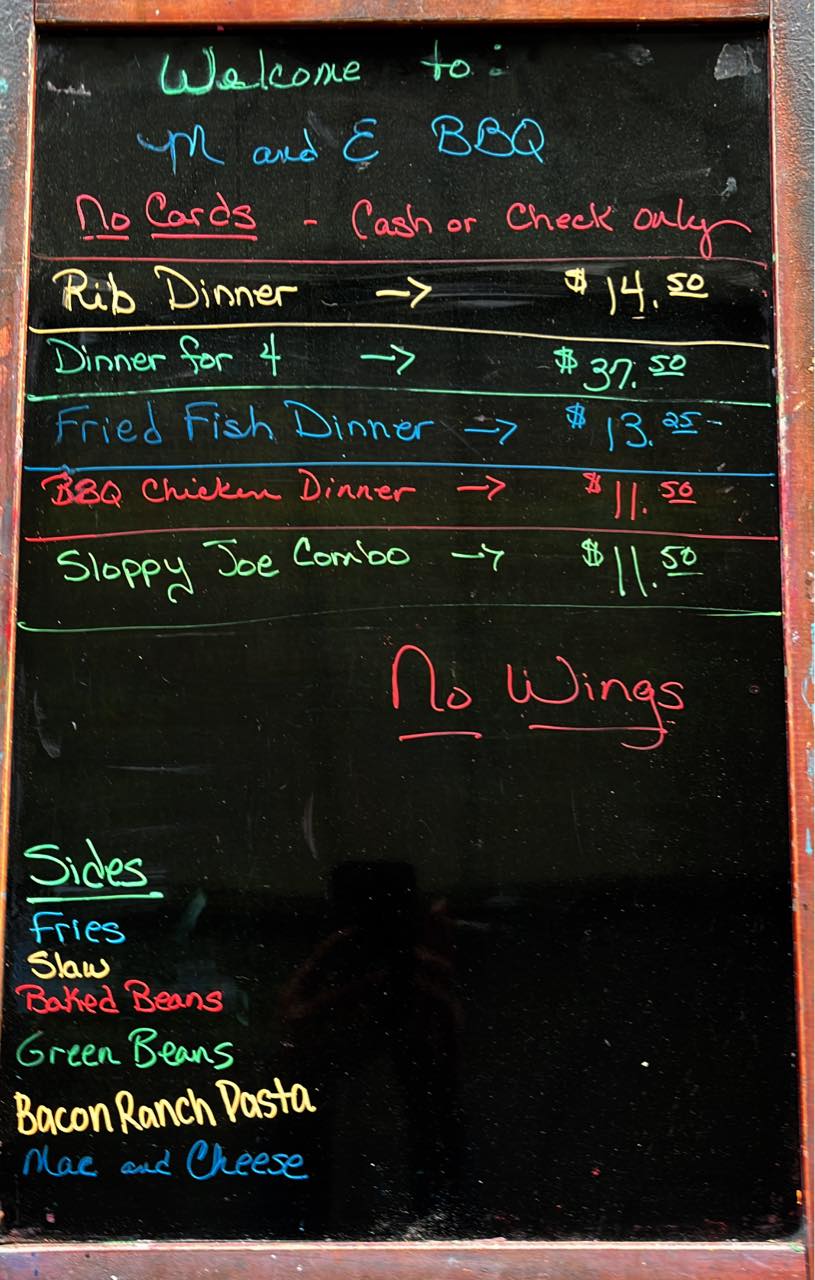 Welcome to:
M and E BBQ
No Cards - Cash or Check only
Rib Dinner → $14.50
Dinner for 4 → $37.50
Fried Fish Dinner → $13.25
BBQ Chicken Dinner → $11.50
Sloppy Joe Combo → $11.50
No Wings
Sides
Fries
Slaw
Baked Beans
Green Beans
Bacon Ranch Pasta
Mac and Cheese